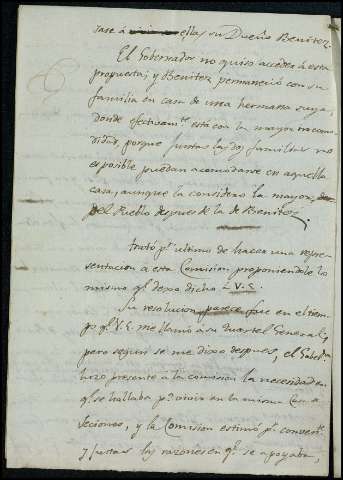 sase á ella, su Dueño Benitez.
El Gobernador no quiso acceder á esta
propuesta; y Benitez permaneció con su
familia en casa de una hermana suya,
donde efectivamte está con la mayor incomo
didad, porque juntas las dos familias no
es posible puedan acomodarse en aquella
casa, aunque la considero la mayor
del Pueblo despues de la de Benitez.
trató pr ultimo de hacer una repre-
sentacion á esta Comision, proponiendole lo
mismo ql dexo dicho á V.E.
Su resolucion fue en el tiem-
po ql V.E. me llamó á su Quartel General;
pero segun se me dixo despues, el Gobr
hizo presente á la comision la necesidad en
ql se hallaba pa vivir en la misma Casa
secciones, y la Comision estimó pr convente
y justas las razones en ql se apoyaba,